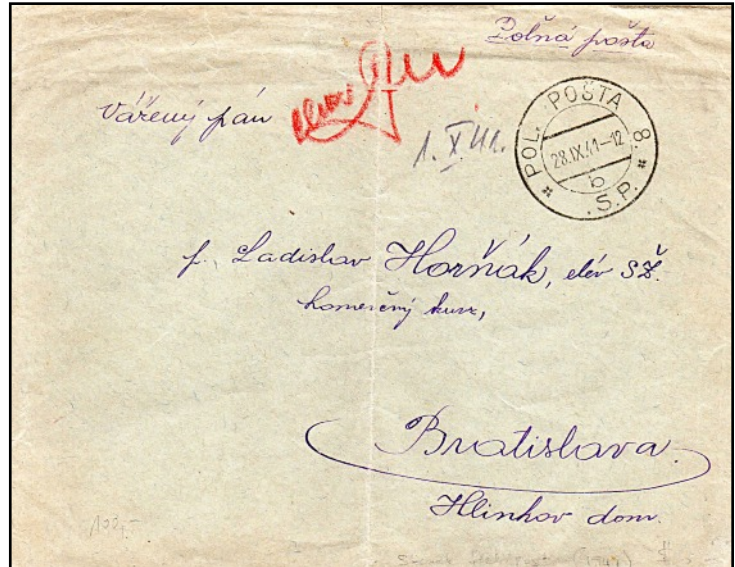 Poľná pošta
Vážený pán
1. X 41.
POL. POŠTA 8
28.IX.41–12
b
* .S.P. *
p. Ladislav Horňák, elév SŽ.
komerčný kurz,
Bratislava
Hlinkov dom.
102,-